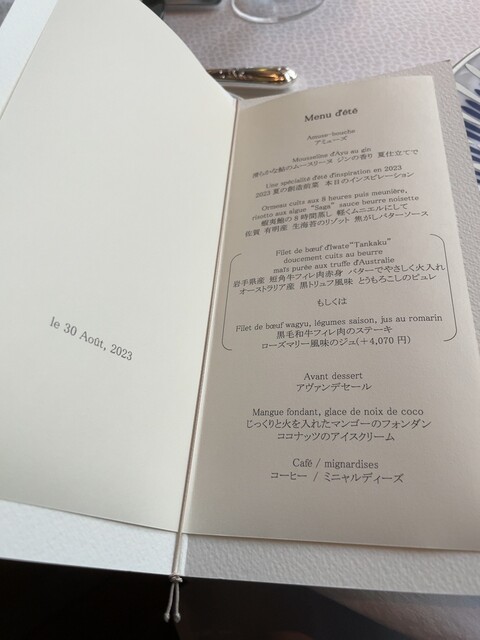 le 30 Août, 2023
Menu d'été
Amuse-bouche
アミューズ
Mousseline d'Ayu au gin
滑らかな鮎のムースリーヌ ジンの香り 夏仕立てで
Une spécialité d'été d'inspiration en 2023
2023 夏の創造前菜 本日のインスピレーション
Ormeau cuits aux 8 heures puis meunière,
risotto aux algue "Saga" sauce beurre noisette
蝦夷鮑の 8 時間蒸し 軽くムニエルにして
佐賀 有明産 生海苔のリゾット 焦がしバターソース
Filet de bœuf d'Iwate "Tankaku"
doucement cuits au beurre
maïs purée aux truffe d'Australie
岩手県産 短角牛フィレ肉赤身 バターでやさしく火入れ
オーストラリア産 黒トリュフ風味 とうもろこしのピュレ
もしくは
Filet de bœuf wagyu, légumes saison, jus au romarin
黒毛和牛フィレ肉のステーキ
ローズマリー風味のジュ(＋4,070 円)
Avant dessert
アヴァンデセール
Mangue fondant, glace de noix de coco
じっくりと火を入れたマンゴーのフォンダン
ココナッツのアイスクリーム
Café / mignardises
コーヒー / ミニャルディーズ